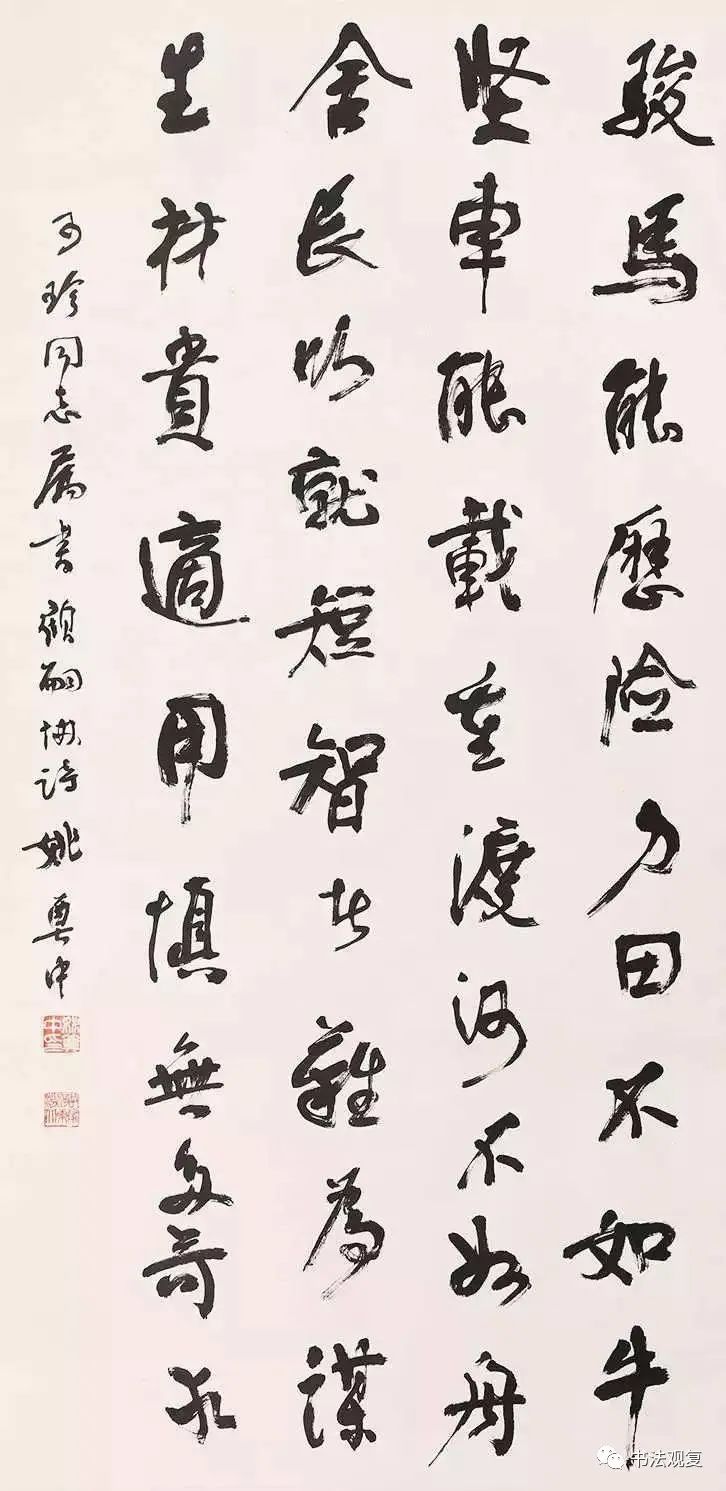 駿馬能歷險力田不如牛
堅車能載重渡河不如舟
舍長以就短智者難為謀
生材貴適用慎無多苛求
可珍同志属書顧嗣協詩姚奠中
书法观复